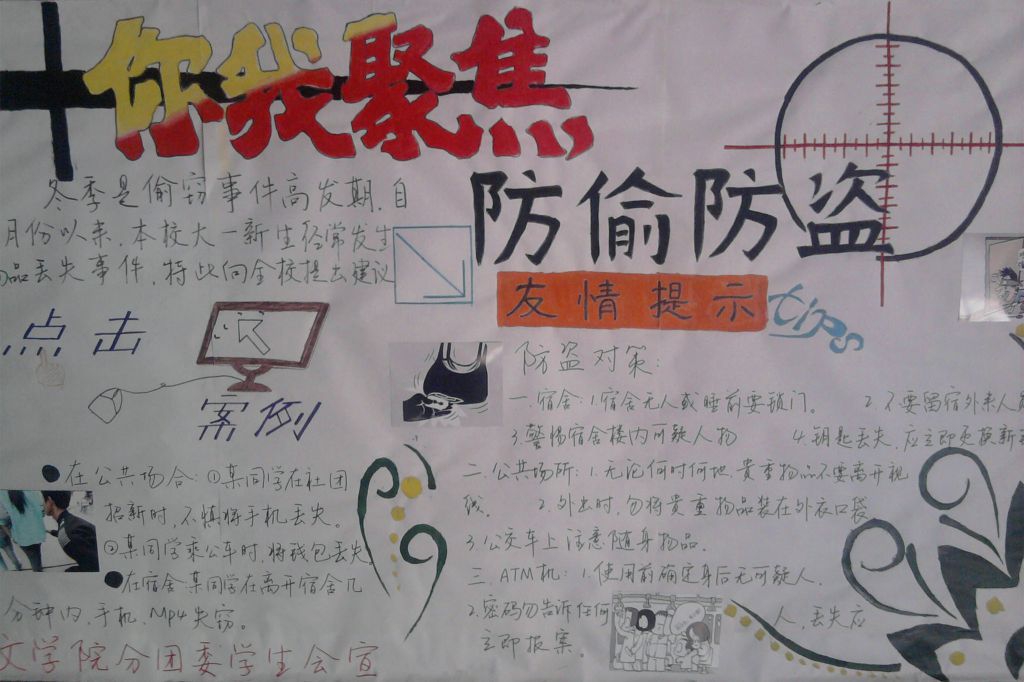 你我聚焦
防偷防盗
友情提示 tips
冬季是偷窃事件高发期,自
月份以来,本校大一新生经常发生
品丢失事件,特此向全校提出建议
点击
案例
●在公共场合:①某同学在社团
招新时,不慎将手机丢失。
②某同学乘公车时,将钱包丢失
●在宿舍:某同学在离开宿舍几
分钟内,手机,MP4失窃。
文学院分团委学生会宣
防盗对策:
一.宿舍:1.宿舍无人或睡前要锁门。 2.不要留宿外来人
3.警惕宿舍楼内可疑人物 4.钥匙丢失,应立即更换新
二.公共场所:1.无论何时何地,贵重物品不要离开视
线。 2.外出时,勿将贵重物品装在外衣口袋
3.公交车上注意随身物品.
三.ATM机:1.使用前确定身后无可疑人.
2.密码勿告诉任何 人,丢失应
立即报案。